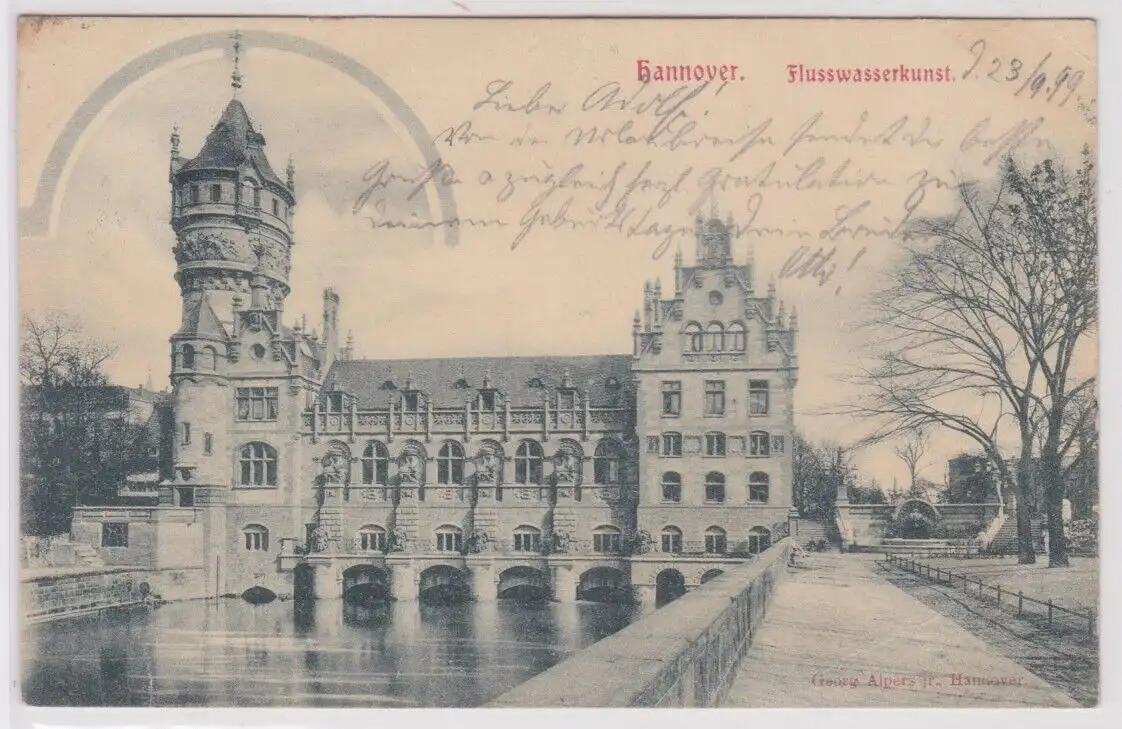 Hannover. Flusswasserkunst. d. 23/9.99
Lieber Adolf!
Von der Urlaubreise sendet dir besten
Gruß u zugleich herzl Gratulation zu
deinem Geburtstage dein Bruder
Otto!
Georg Alpers jr., Hannover.